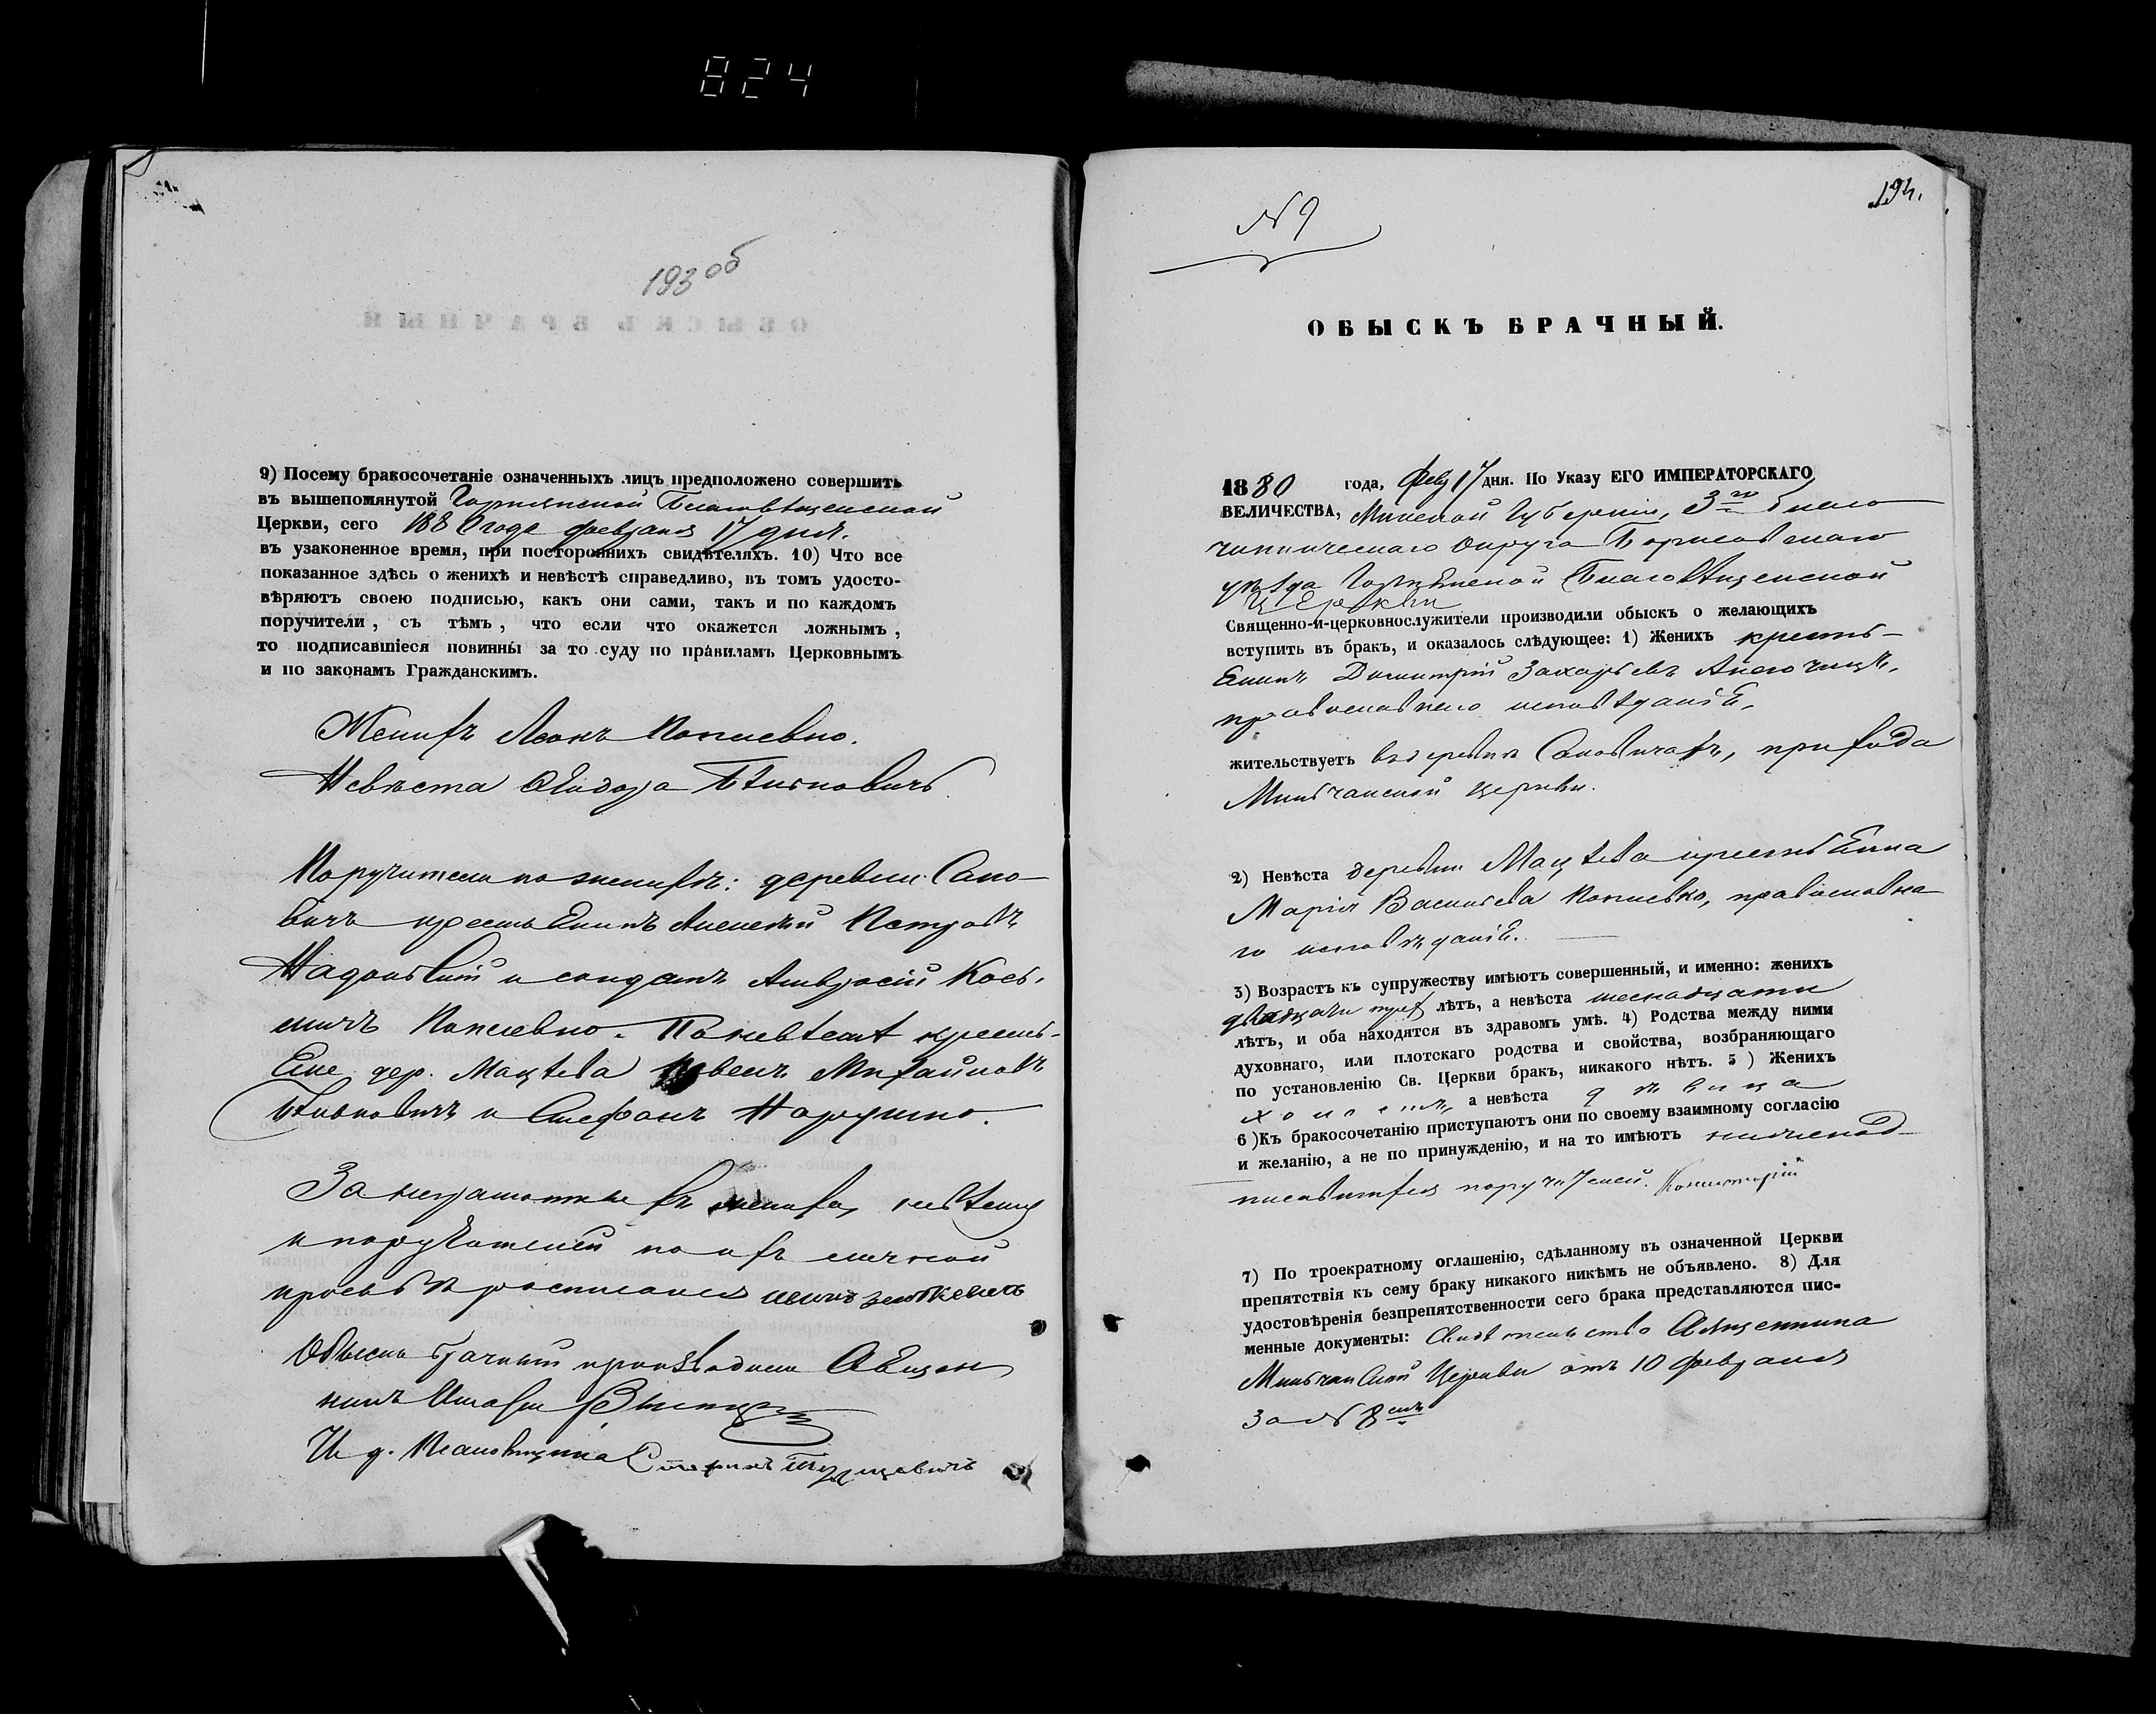 824
193 об
9) Посему бракосочетаніе означенныхъ лицъ предположено совершить
въ вышепомянутой Благовѣщенской
Церкви, сего 1880 года февраля 17 дня.
въ узаконенное время, при постороннихъ свидѣтеляхъ. 10) Что все
показанное здѣсь о женихѣ и невѣстѣ справедливо, въ томъ удосто-
вѣряютъ своею подписью, какъ они сами, такъ и по каждомъ
поручители, съ тѣмъ, что если что окажется ложнымъ,
то подписавшіеся повинны за то суду по правиламъ Церковнымъ
и по законамъ Гражданскимъ.
Женихъ Леонъ
Невѣста Ѳіодора
Поручители по женихѣ: деревни Сако-
вичъ крестьянинъ Алексѣй Петровъ
и солдатъ Амвросій Кось-
минъ По невѣстѣ кресть-
яне дер. Мацѣева Михайловъ
и Стефанъ
За неграмотныхъ жениха, невѣсту
и поручителей по ихъ личной
просьбѣ росписался
Обыскъ брачный производили Священ-
никъ
И д. Псаломщика
№ 9
194.
ОБЫСКЪ БРАЧНЫЙ.
1880 года, Февр 17 дня. По Указу ЕГО ИМПЕРАТОРСКАГО
ВЕЛИЧЕСТВА, Минской Губерніи, 3го Благо
чинническаго Округа Борисовскаго
уѣзда Благовѣщенской
Церкви
Священно-и-церковнослужители производили обыскъ о желающихъ
вступить въ бракъ, и оказалось слѣдующее: 1) Женихъ кресть-
янинъ Димитрій Захарьевъ
православнаго исповѣданія,
жительствуетъ въ деревнѣ Саковичахъ, прихода
Мильчанской церкви.
2) Невѣста деревни Мацѣева крестьянка
Марія Васильева православна
го исповѣданія.
3) Возрастъ къ супружеству имѣютъ совершенный, и именно: женихъ
двадцати трехъ лѣтъ, а невѣста шеснадцати
лѣтъ, и оба находятся въ здравомъ умѣ. 4) Родства между ними
духовнаго, или плотскаго родства и свойства, возбраняющаго
по установленію Св. Церкви бракъ, никакого нѣтъ. 5 ) Женихъ
холостъ, а невѣста дѣвица
6 )Къ бракосочетанію приступаютъ они по своему взаимному согласію
и желанію, а не по принужденію, и на то имѣютъ нижепод-
писавшихся поручителей.
7) По троекратному оглашенію, сдѣланному въ означенной Церкви
препятствія къ сему браку никакого никѣмъ не объявлено. 8) Для
удостовѣренія безпрепятственности сего брака представляются пис-
менные документы: Свидѣтельство Священника
Мильчанской Церкви отъ 10 февраля
за № 8